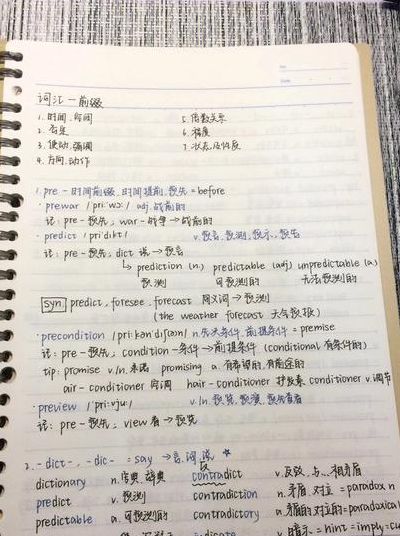 词汇一前缀
1. 时间、空间 5. 倍数关系
2. 否定 6. 程度
3. 使动、强调 7. 状态及性质
4. 方向、动作
1. pre - 时间前缀, 时间提前, 预先 = before
· prewar /pri'wɔ:/ adj. 战前的
记: pre-预先; war-战争→战前的
· predict /pri'dɪkt/ v. 预言, 预测, 预示, 预告
记: pre-预先; dict 说→预言
↳ prediction (n.) predictable (adj) unpredictable (a.)
预测 可预测的 无法预测的
syn predict, foresee, forecast 同义词→预测
(the weather forecast 天气预报)
· precondition /pri:kən'diʃəm/ n. 先决条件, 前提条件 = premise
记: pre-预先; condition-条件→前提条件 (conditional 有条件的)
tip: promise v./n. 承诺 promising a. 有希望的, 有前途的
air-conditioner 空调 hair-conditioner 护发素 conditioner v. 调节
· preview /'pri:vju:/ v./n. 预览, 预演, 预先查看
记: pre-预先; view 看→预览
2. -dict-, -dic- = say →言, 词, 说 ☆
dictionary n. 字典, 辞典 contradict v. 反驳, 与…相矛盾
predict v. 预测 contradiction n. 矛盾, 对立 = paradox n
predictable a. 可预测的 contradictory a. 矛盾的, 对立的 = paradoxica
indicate v. 暗示 = hint = imply = cu